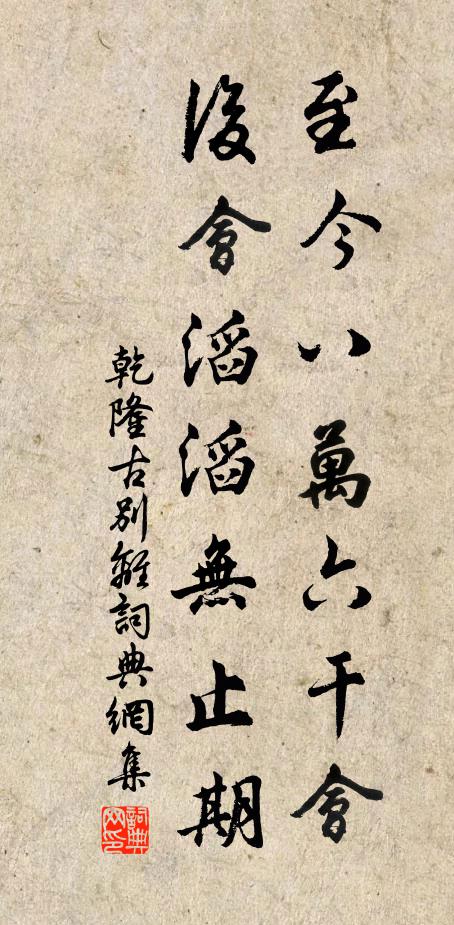 至今八萬六千會
後會滔滔無止期
乾隆古別離詞典網集
詞典
网印